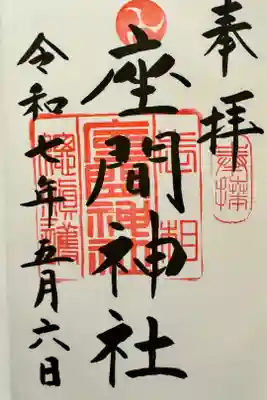 奉拝
座間神社
令和七年五月六日